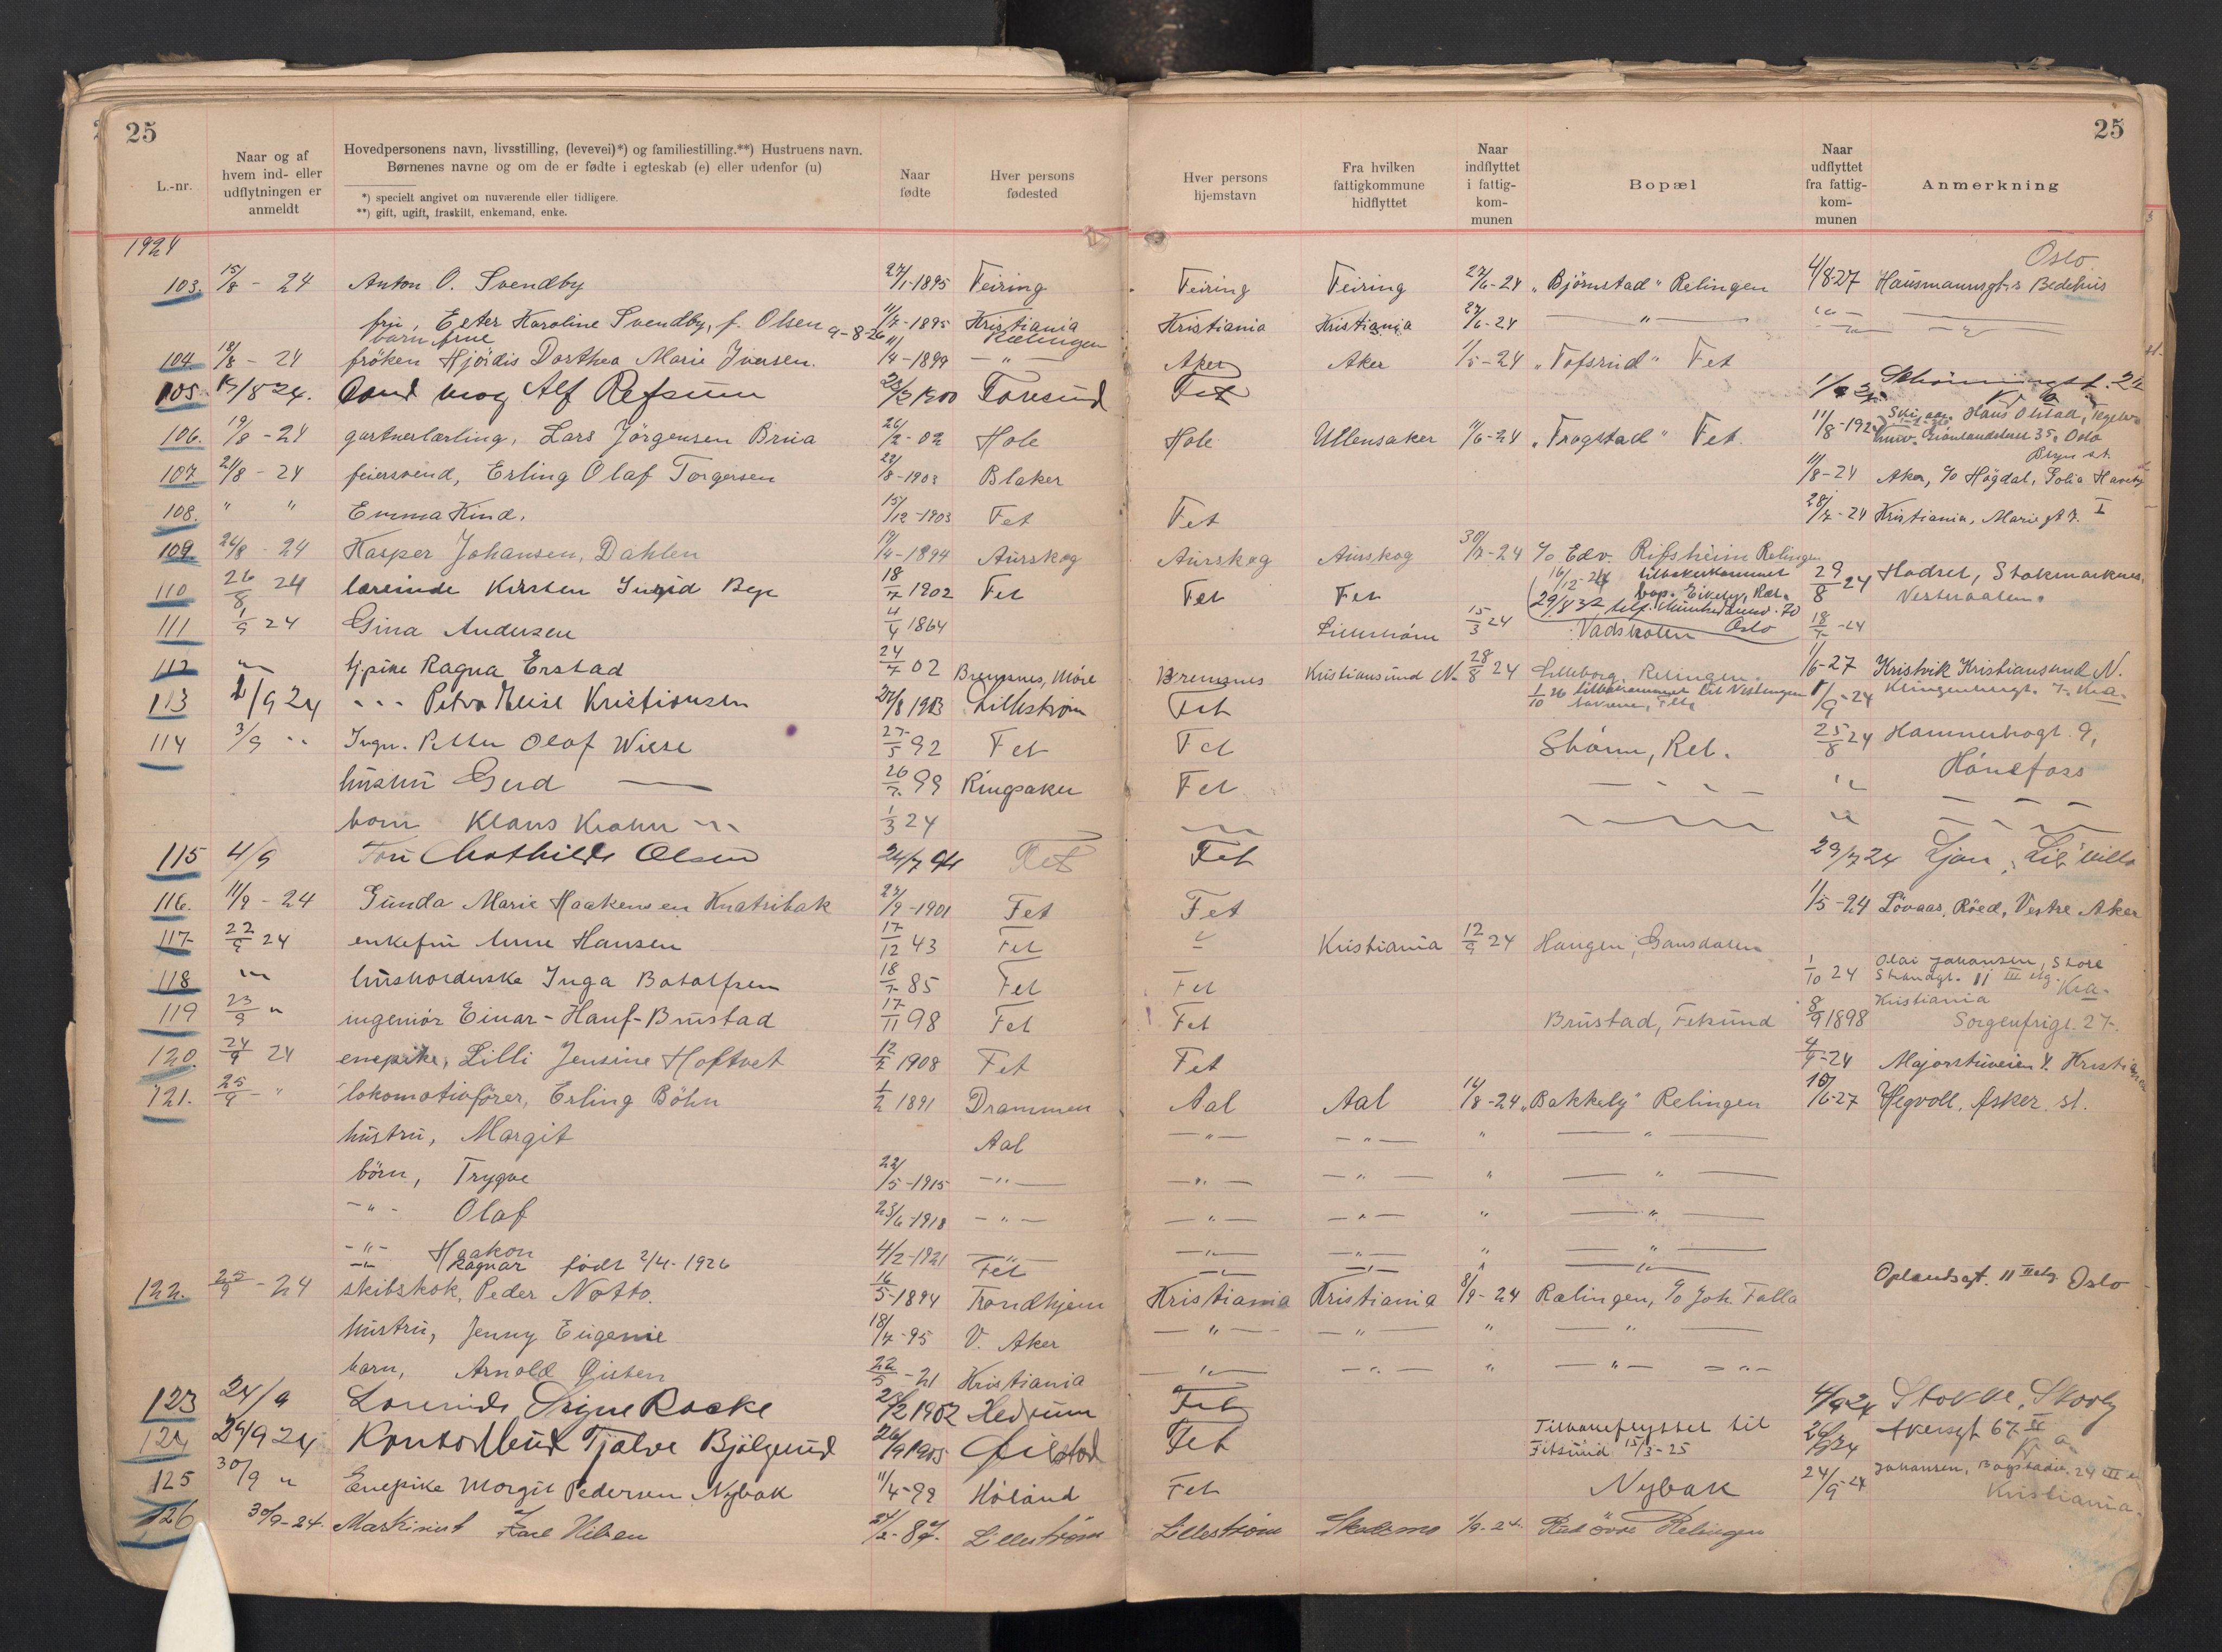 25
25
L.-nr.
Naar og af hvem ind- eller udflytningen er anmeldt
Hovedpersonens navn, livsstilling, (levevei)*) og familiestilling.**) Hustruens navn.
Børnenes navne og om de er fødte i egteskab (e) eller udenfor (u)
*) specielt angivet om nuværende eller tidligere.
**) gift, ugift, fraskilt, enkemand, enke.
Naar fødte
Hver persons fødested
Hver persons hjemstavn
Fra hvilken fattigkommune hidflyttet
Naar indflyttet i fattig-kom-munen
Bopæl
Naar udflyttet fra fattig-kom-munen
Anmerkning
1924
Oslo
103. 15/8 - 24 Anton O. Svendby 27/1-1895 Feiring Feiring Feiring 27/6-24 "Björnstad" Relingen 4/8-27 Hausmannsgt. Bedehus
fru, Ester Karoline Svendby, f. Olsen 11/7-1895 Kristiania Kristiania Kristiania 27/6-24 — " —
barn Arne 9-8-26 Rælingen
104. 18/8 - 24 fröken Hjördis Dorthea Marie Iversen. 11/4-1899 — " — Aker Aker 1/5-24 "Tofsrud" Fet
105. 19/8 24. Alf Refsum Fet
106. 19/8 - 24 gartnerlærling, Lars Jörgensen Brua 24/2-02 Hole Hole Ullensaker 1/6-24 "Tragstad" Fet. 11/8-192 Hans Olstad, Oslo
107. 21/8 - 24 feiersvend, Erling Olaf Torgersen 22/8-1903 Blaker 11/8-24 Aker, c/o Högdal, Solia Haveby
Bryn st.
108. " " Emma Kind. 15/12-1903 Fet Fet 28/7-24 Kristiania, Mariegt 7. I
109. 26/8 - 24 Kasper Johansen, Dahlen 19/4-1894 Aurskog Aurskog Aurskog 30/7-24 c/o Edv. Rifsheim Relingen
110 26/8 24 lærerinde Kirsten Ingrid Bye 18/7 1902 Fet Fet Fet 16/12-24 tilbakekommet 29/8 24 Hadsel, Stokmarknes, Vesteraalen.
29/8 32 Oslo
111 1/9 24 Gina Andersen 4/4 1864 Lillestrøm 15/3 24 Vadskolen 18/7 -24
112 " tj.pike Ragna Erstad 24/7 02 Bremsnes, Møre Bremsnes Kristiansund N. 28/8 24 Lilleborg, Relingen. 1/6-27 Kristvik Kristiansund N.
113 2/9 24 - - - Petra Elise Kristiansen 27/8 1903 Lillestrøm Fet 1/9-24 Klingenberggt. 7. Kra.
114 3/9 " Ingn. Petter Olaf Wiese 27/5 92 Fet Fet Strøm, Rel. 25/8 24 Hammerbogt. 9, Hønefoss
hustru Gerd — 26/7 99 Ringsaker Fet
barn Klaus Krohn " 1/3 24
115 4/9 Fru Mathilde Olsen 24/7 94 Fet Fet 29/7 24 Ljan, villa
116. 11/9 - 24 Gunda Marie Haakensen Knatribak 27/9-1901 Fet Fet 1/5-24 Lövaas, Röed, Vestre Aker
117 22/9 24 enkefru Anne Hansen 17/12 43 Fet " Kristiania 12/9 24 Haugen, Gansdalen
118 " husholderske Inga Botolfsen 18/7 85 Fet Fet 1/10 24 Olai Johansen, Store Strandgt. 11 III etg. Kra.
119 23/9 " ingeniør Einar-Hauf-Brustad 17/11 98 Fet Fet Brustad, Fetsund 8/9 1898 Kristiania Sorgenfrigt. 27.
120. 24/9 24 enepike, Lilli Jensine Hoftvet 12/2 1908 Fet Fet 4/9-24 Majorstuveien 4. Kristiania
121. 25/9 - " lokomotivförer, Erling Böhn 1/2 1891 Drammen Aal Aal 14/8-24 "Bakkely" Relingen 10/6-27 Hegvoll, Asker st.
hustru, Margit Aal — " — — " — " — " —
börn, Trygve 22/5-1915 — " — — " — — " — " — " —
- " - Olaf 23/6-1918 — " — — " — — " — " — " —
- " - Haakon 4/2-1921 — " — — " — — " — " — " —
- " - Ragnar født 2/4-1926 Fet
122. 25/9 - 24 skibskok, Peder Notto. 16/5-1894 Trondhjem Kristiania Kristiania 8/9-24 Rælingen, c/o Joh. Falla Oplandsgt. 11 II etg. Oslo
hustru, Jenny Eugenie 18/7-95 V. Aker — " — — " — " — " —
barn, Arnold Øisten 22/5-21 Kristiania — " — — " — " — " —
123 24/9 Signe Racke Hedrum Fet 4/9 24 Stokke,
124 29/9 24 Tjalve Bjölgerud Fet Tilbakeflyttet til Fetsund 15/3-25 Akersgt 67 II
125 30/9 " Enepike Margit Pedersen Nybak 11/4-99 Høland Fet Nybak 24/9 24 Johansen, Bogstadv. 24 III Kristiania.
126 30/9-24. Maskinist Karl Nilsen Lillestrøm Lillestrøm 1/9-24. Rud øvre Relingen